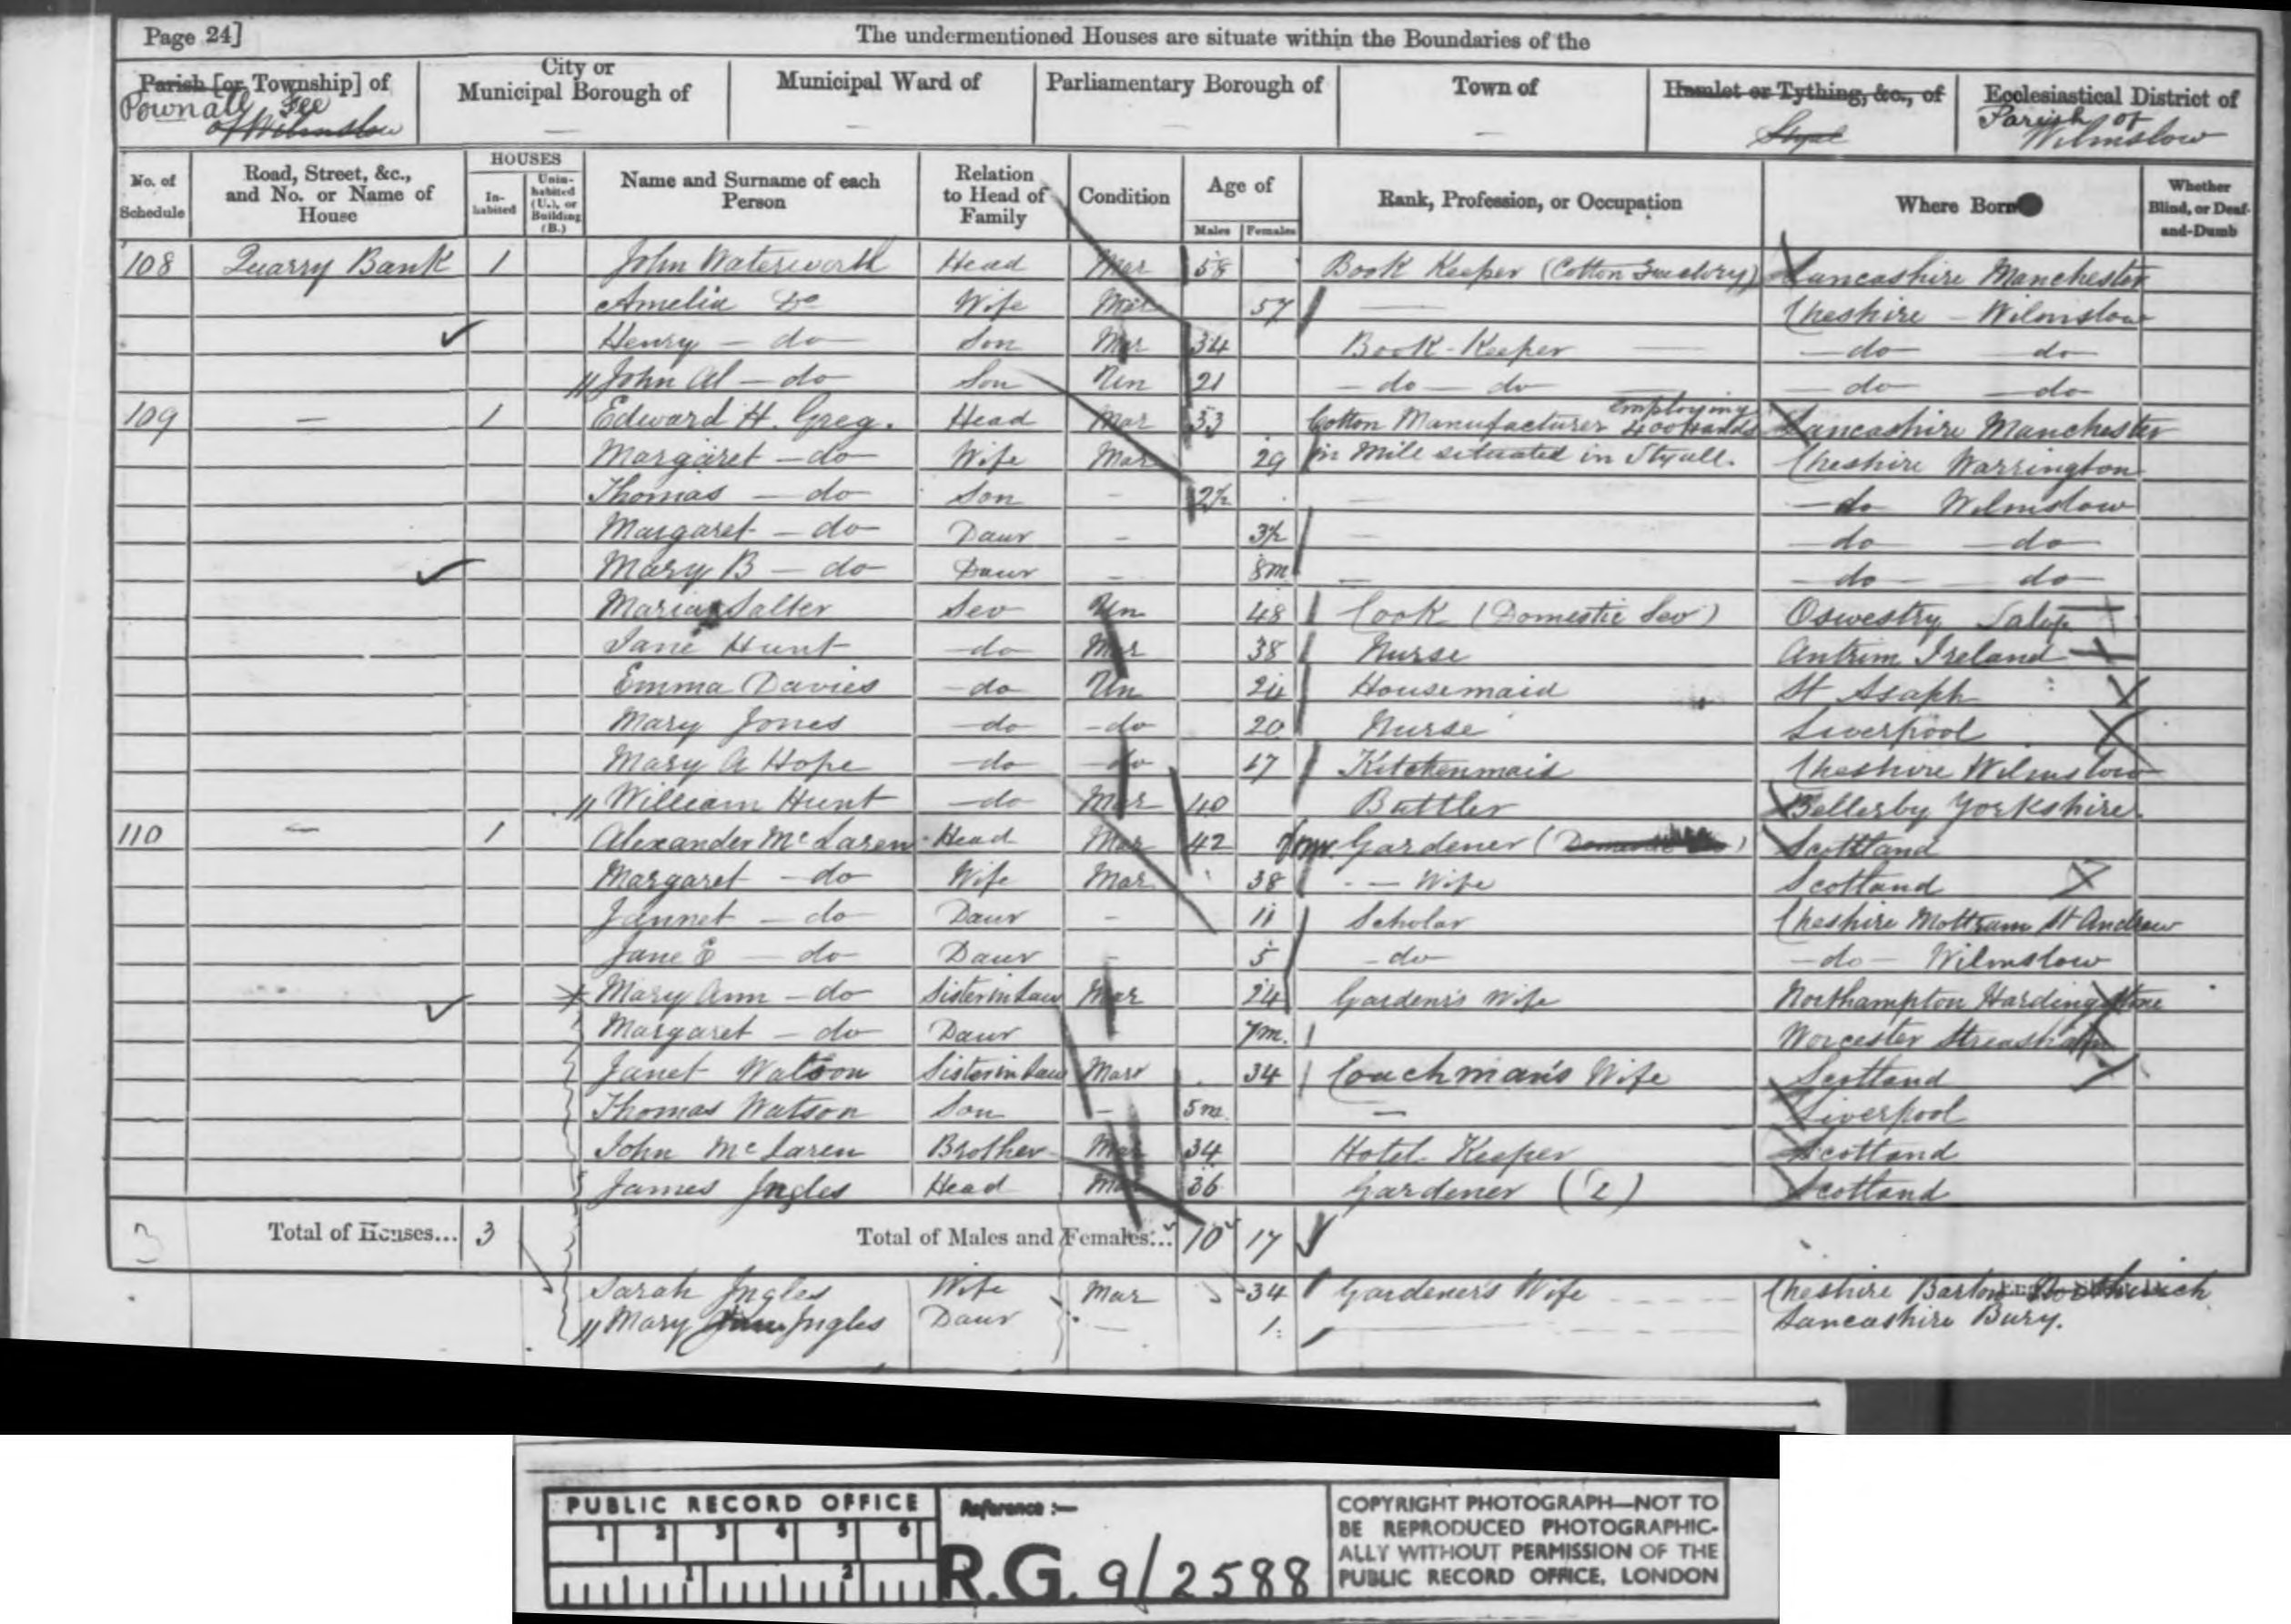 Page 24]
The undermentioned Houses are situate within the Boundaries of the
Parish [or Township] of
Pownall Fee
of Wilmslow
City or
Municipal Borough of
—
Municipal Ward of
—
Parliamentary Borough of
—
Town of
—
Hamlet or Tything, &c., of
Styal
Ecclesiastical District of
Parish of
Wilmslow
No. of
Schedule
Road, Street, &c.,
and No. or Name of
House
HOUSES
In-
habited
Unin-
habited
(U.), or
Building
(B.)
Name and Surname of each
Person
Relation
to Head of
Family
Condition
Age of
Males
Females
Rank, Profession, or Occupation
Where Born
Whether
Blind, or Deaf-
and-Dumb
108 Quarry Bank 1 John Waterworth Head Mar 58 Book Keeper (Cotton Factory) Lancashire Manchester
Amelia Do Wife Mar 57 — Cheshire — Wilmslow
Henry — do Son Mar 34 Book-Keeper — — do — do —
John Al — do Son Un 21 — do — do — — do — do
109 — 1 Edward H. Greg. Head Mar 33 Cotton Manufacturer employing 400 Hands Lancashire Manchester
Margaret — do Wife Mar 29 in Mill situated in Styall. Cheshire Warrington
Thomas — do Son - 2½ — — do Wilmslow
Margaret — do Daur - 3½ — — do — do
Mary B — do Daur - 8m — — do — do
Maria Salter Sev Un 48 Cook (Domestic Sev) Oswestry Salop
Jane Hunt — do Mar 38 Nurse Antrim Ireland
Emma Davies — do Un 24 Housemaid St Asaph
Mary Jones — do — do 20 Nurse Liverpool
Mary A Hope — do — do 17 Kitchenmaid Cheshire Wilmslow
William Hunt — do Mar 40 Buttler Bellerby Yorkshire.
110 — 1 Alexander McLaren Head Mar 42 Gardener ( Scottland
Margaret — do Wife Mar 38 — Wife Scotland
Jannet — do Daur - 11 Scholar Cheshire Mottram St Andrew
Jane E — do Daur - 5 — do — do — Wilmslow
Mary Ann — do Sister in Law Mar 24 Gardener's Wife Northampton Hardingstone
Margaret — do Daur 7m. Worcester
Janet Watson Sister in Law Marr 34 Coachman's Wife Scotland
Thomas Watson Son — 5m. — Liverpool
John McLaren Brother Mar 34 Hotel Keeper Scotland
James Ingles Head Mar 36 Gardener Scotland
3 Total of Houses... 3 Total of Males and Females... 10 17
Sarah Ingles Wife Mar 34 Gardener's Wife Cheshire Barton
Mary Ingles Daur — 1 Lancashire Bury.
PUBLIC RECORD OFFICE
1 2 3 4 5 6
1 2
Reference :—
R.G. 9/2588
COPYRIGHT PHOTOGRAPH—NOT TO
BE REPRODUCED PHOTOGRAPHIC-
ALLY WITHOUT PERMISSION OF THE
PUBLIC RECORD OFFICE, LONDON